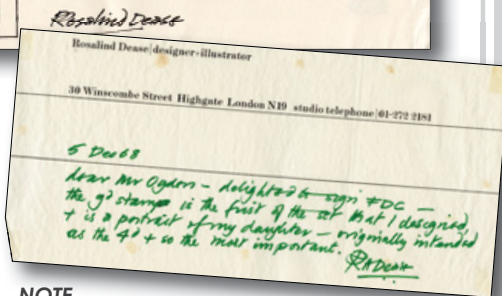 Rosalind Dease
Rosalind Dease|designer-illustrator
30 Winscombe Street Highgate London N19 studio telephone|01-272 2181
5 Dec 68
dear Mr Ogdon – delighted to sign FDC –
the 9d stamp is the first of the set that I designed,
+ is a portrait of my daughter – originally intended
as the 4d + so the most important.
RADease
NOTE